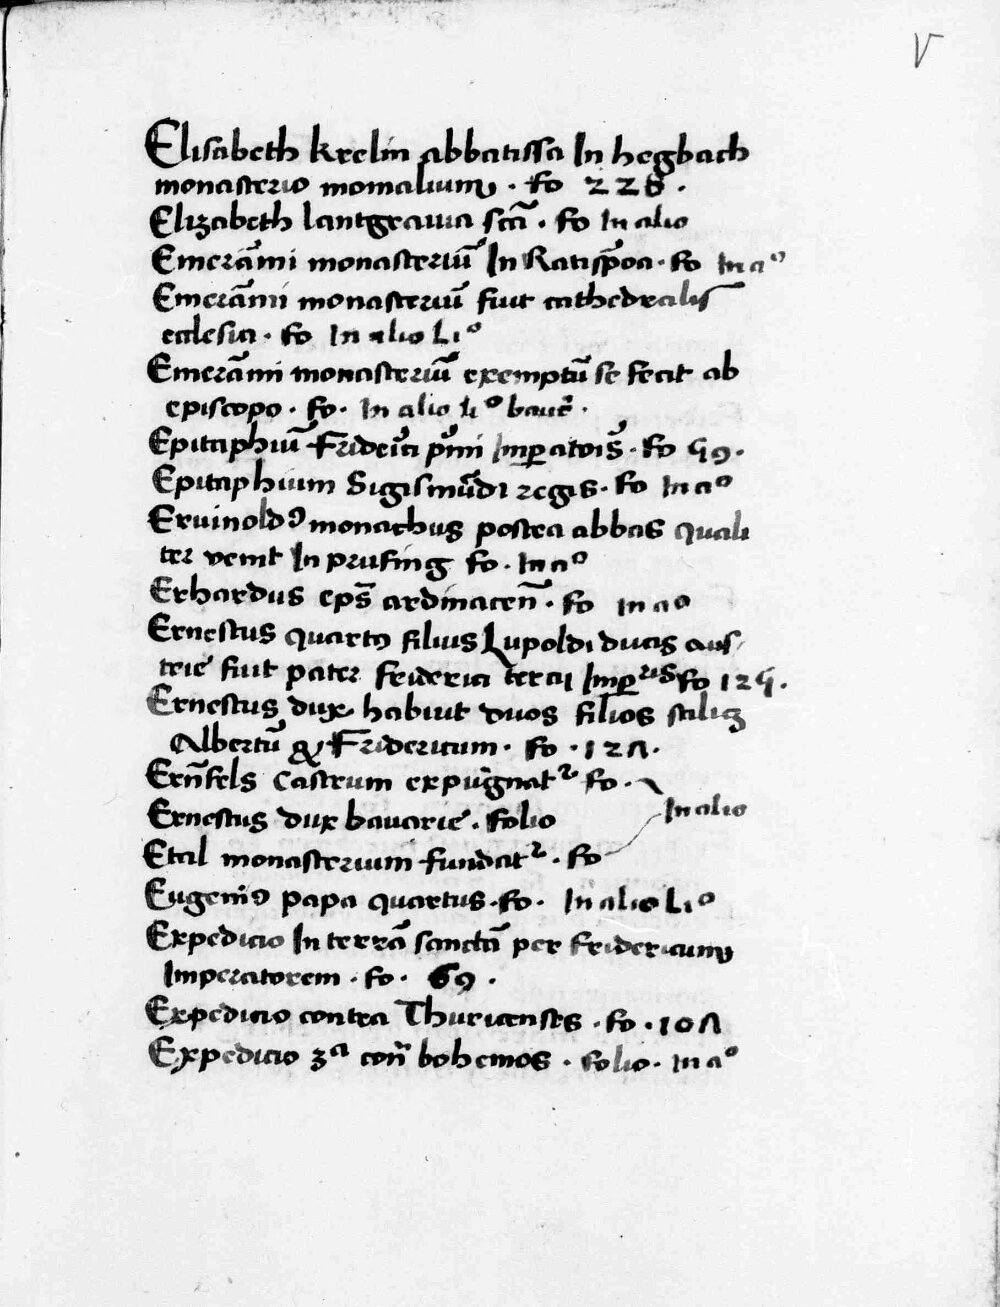 V
Elisabeth krelin abbatissa In hegbach
monasterio monialium . fo 228 .
Elizabeth lantgravia sctā . fo In alio
Emerāmi monasteriū In Ratispōa . fo In aº
Emerāmi monasteriū fuit cathedralis
ecclesia . fo In alio Liº
Emerāmi monasteriū exemptū se fecit ab
episcopo . fo . In alio liº
Epitaphiū Frideici pimi Imperatois . fo 59 .
Epitaphium Sigismūdi regis . fo In aº
Eruinoldꝰ monachus postea abbas quali
ter venit In prufing fo . In aº
Erhardus eps ardinacen̄ . fo In aº
Ernestus quartꝰ filius Lupoldi ducis aus
trie fuit pater friderici tercij Imperris fo 125 .
Ernestus dux habuit duos filios scilicꝫ
Albertū & Fridericum . fo . 127 .
Ern̄fels Castrum expugnatr fo .
In alio
Ernestus dux bavarie . folio
Etal monasterium fundatr . fo
Eugeniꝰ papa quartus . fo . In alio Liº
Expedicio In terrā sanctā per fridericum
Imperatorem . fo . 69 .
Expedicio contra Thuricenses . fo . 107
Expedicio 3a con̄ bohemos . folio . In aº